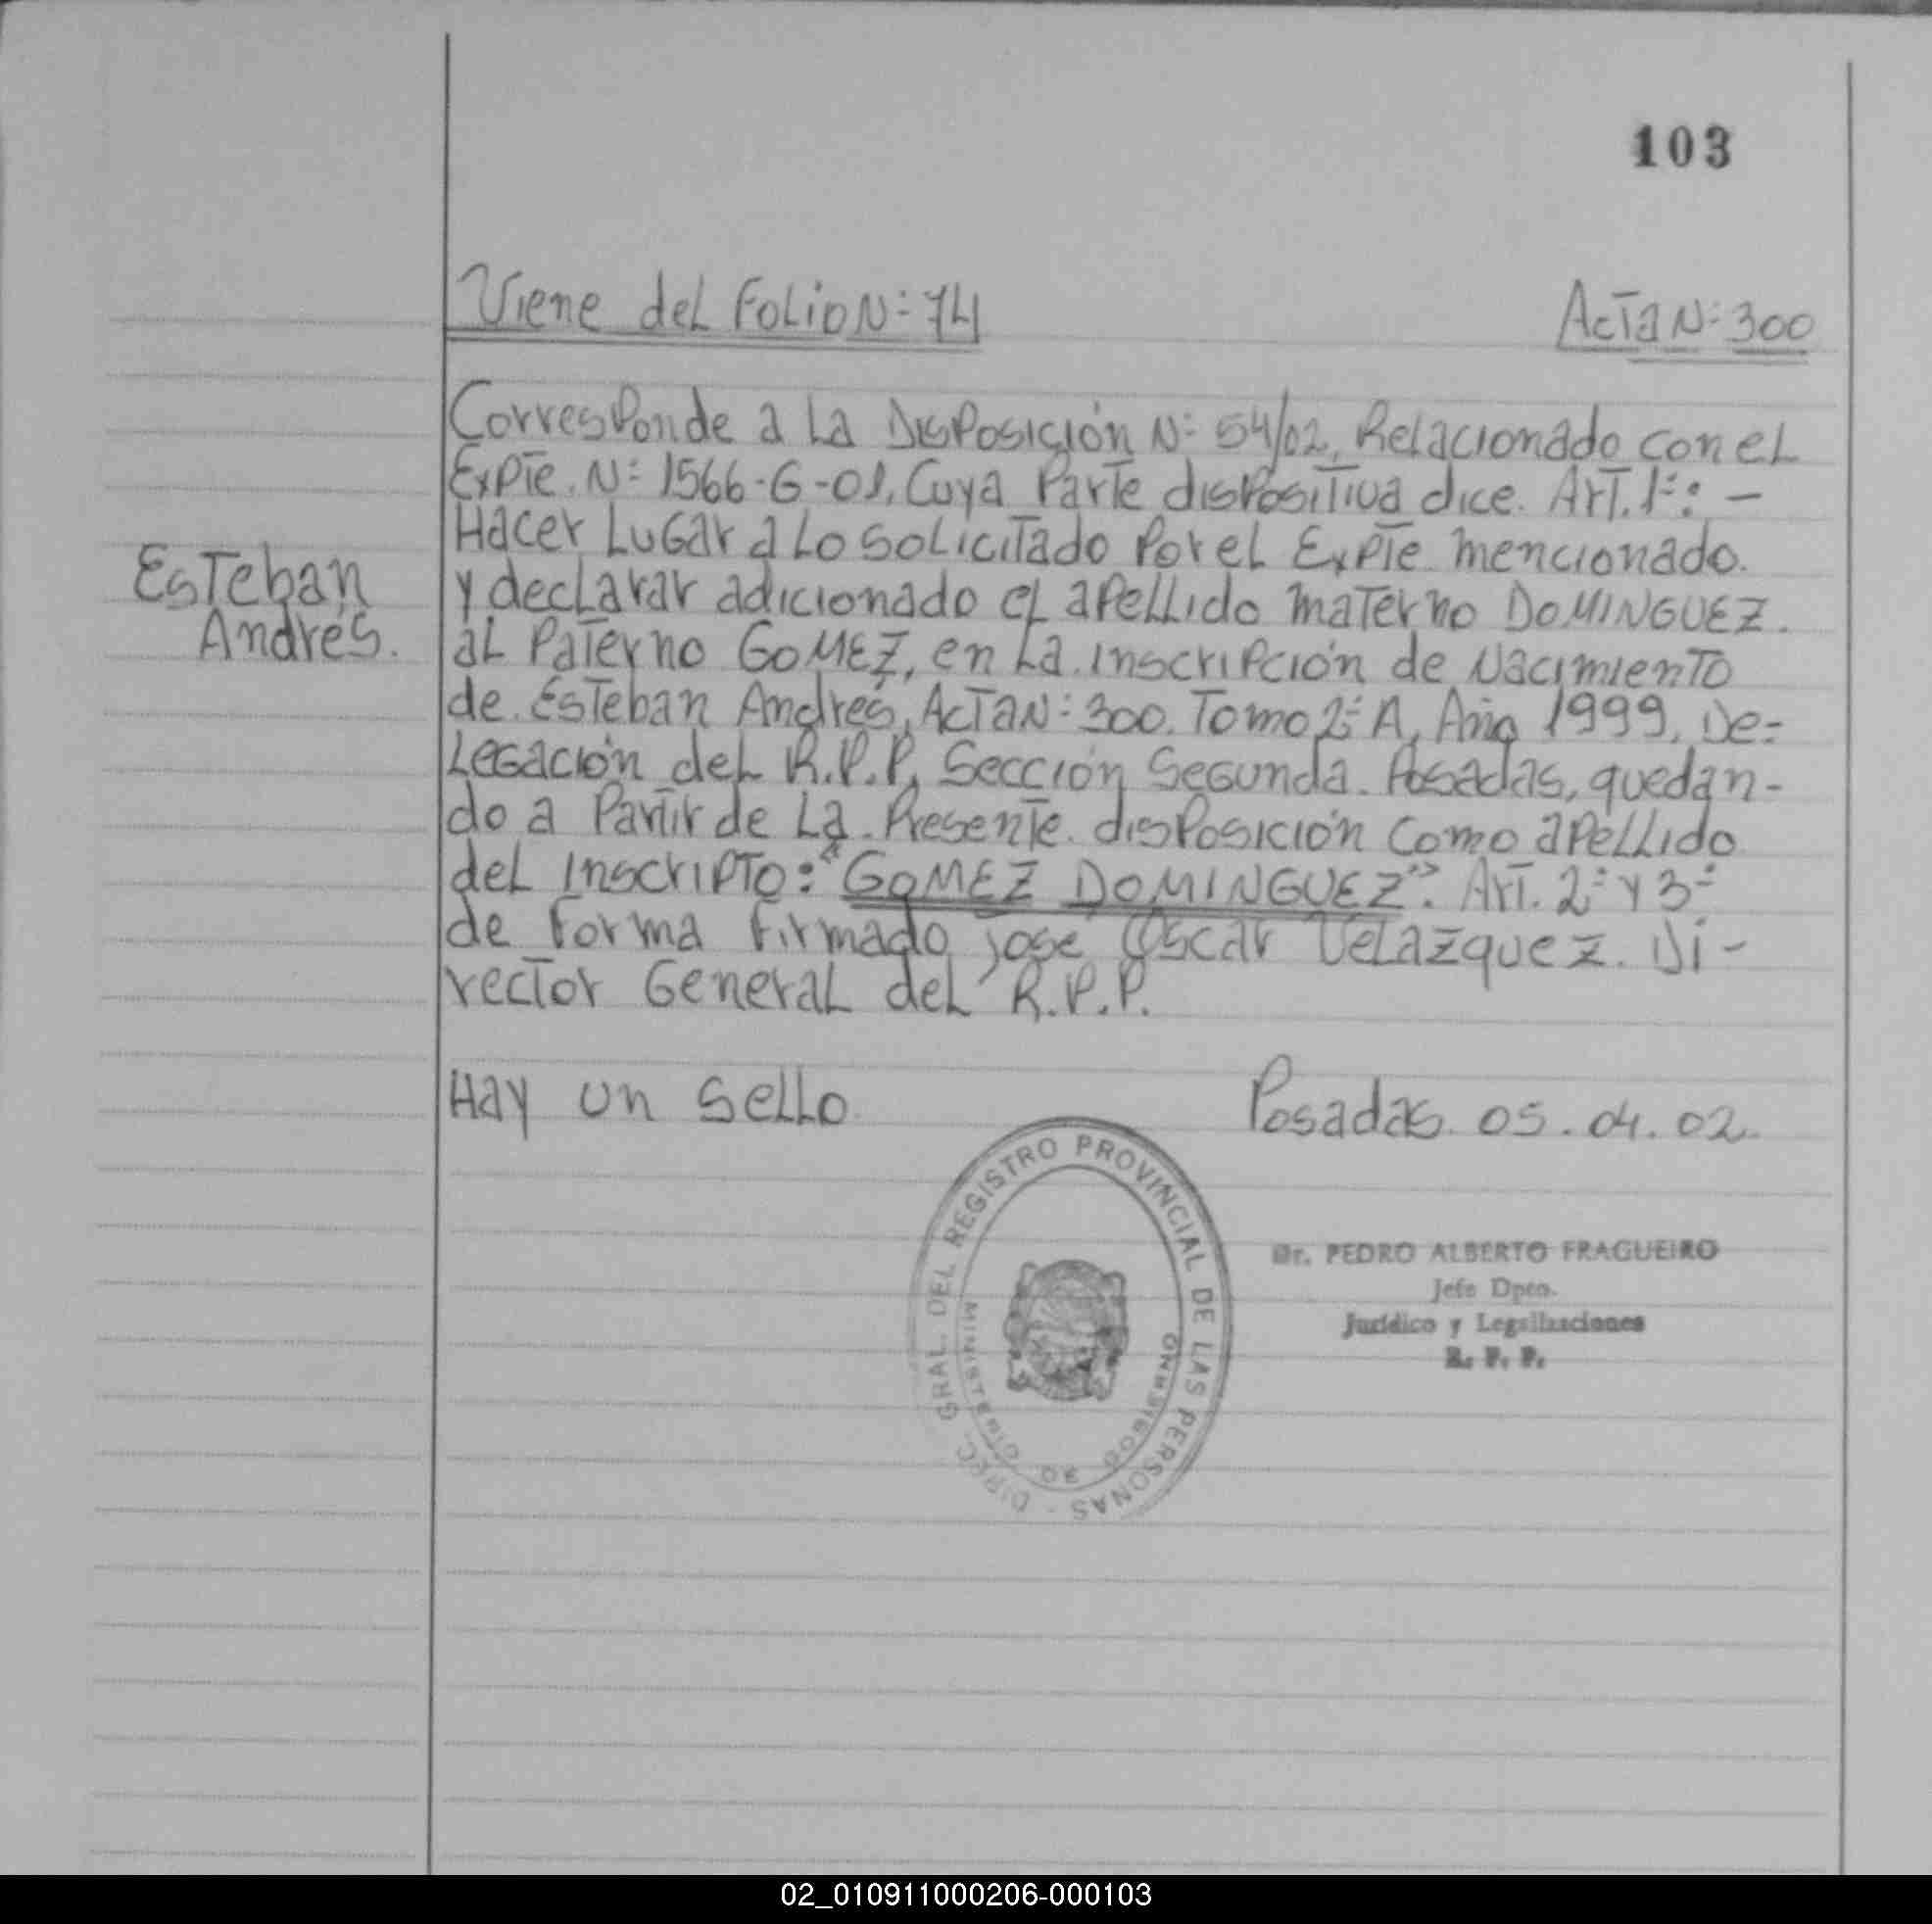 103
Viene del Folio N: 74
Acta N: 300
Corresponde a La Disposición N: 54/02, Relacionado con el
Expte. N: 1566-G-01, Cuya Parte dispositiva dice. Art. 1º: -
Hacer Lugar a Lo Solicitado Por el Expte mencionado.
Esteban
y declarar adicionado el apellido materno DOMINGUEZ.
Andrés.
al Paterno GOMEZ, en La inscripción de Nacimiento
de Esteban Andrés, Acta N: 300. Tomo 2º A, Año 1999, De-
Legación del R.P.P, Sección Segunda. Posadas, quedan-
do a Partir de La Presente disposición Como apellido
del inscripto: "GOMEZ DOMINGUEZ". Art. 2º y 3º
de Forma Firmado José Oscar Velazquez. Di-
rector General del R.P.P.
Hay un Sello
Posadas 05.04.02
DIREC. GRAL. DEL REGISTRO PROVINCIAL DE LAS PERSONAS -
MINISTERIO DE GOBIERNO
Dr. PEDRO ALBERTO FRAGUEIRO
Jefe Dpto.
Jurídico y Legalizaciones
R. P. P.
02_010911000206-000103